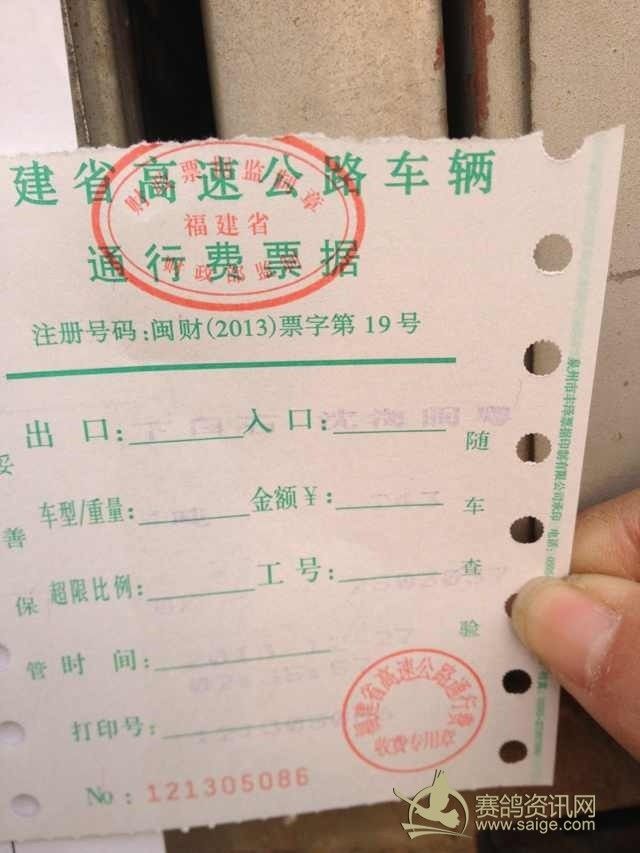 建省高速公路车辆
通行费票据
福建省
注册号码:闽财(2013)票字第 19 号
出 口: 入 口:
车型/重量: 金额¥:
超限比例: 工 号:
时 间:
打印号:
No : 121305086
妥善保管
随车查验
福建省高速公路通行费
收费专用章
泉州市丰泽票据印制有限公司承印 电话:
赛鸽资讯网
www.saige.com